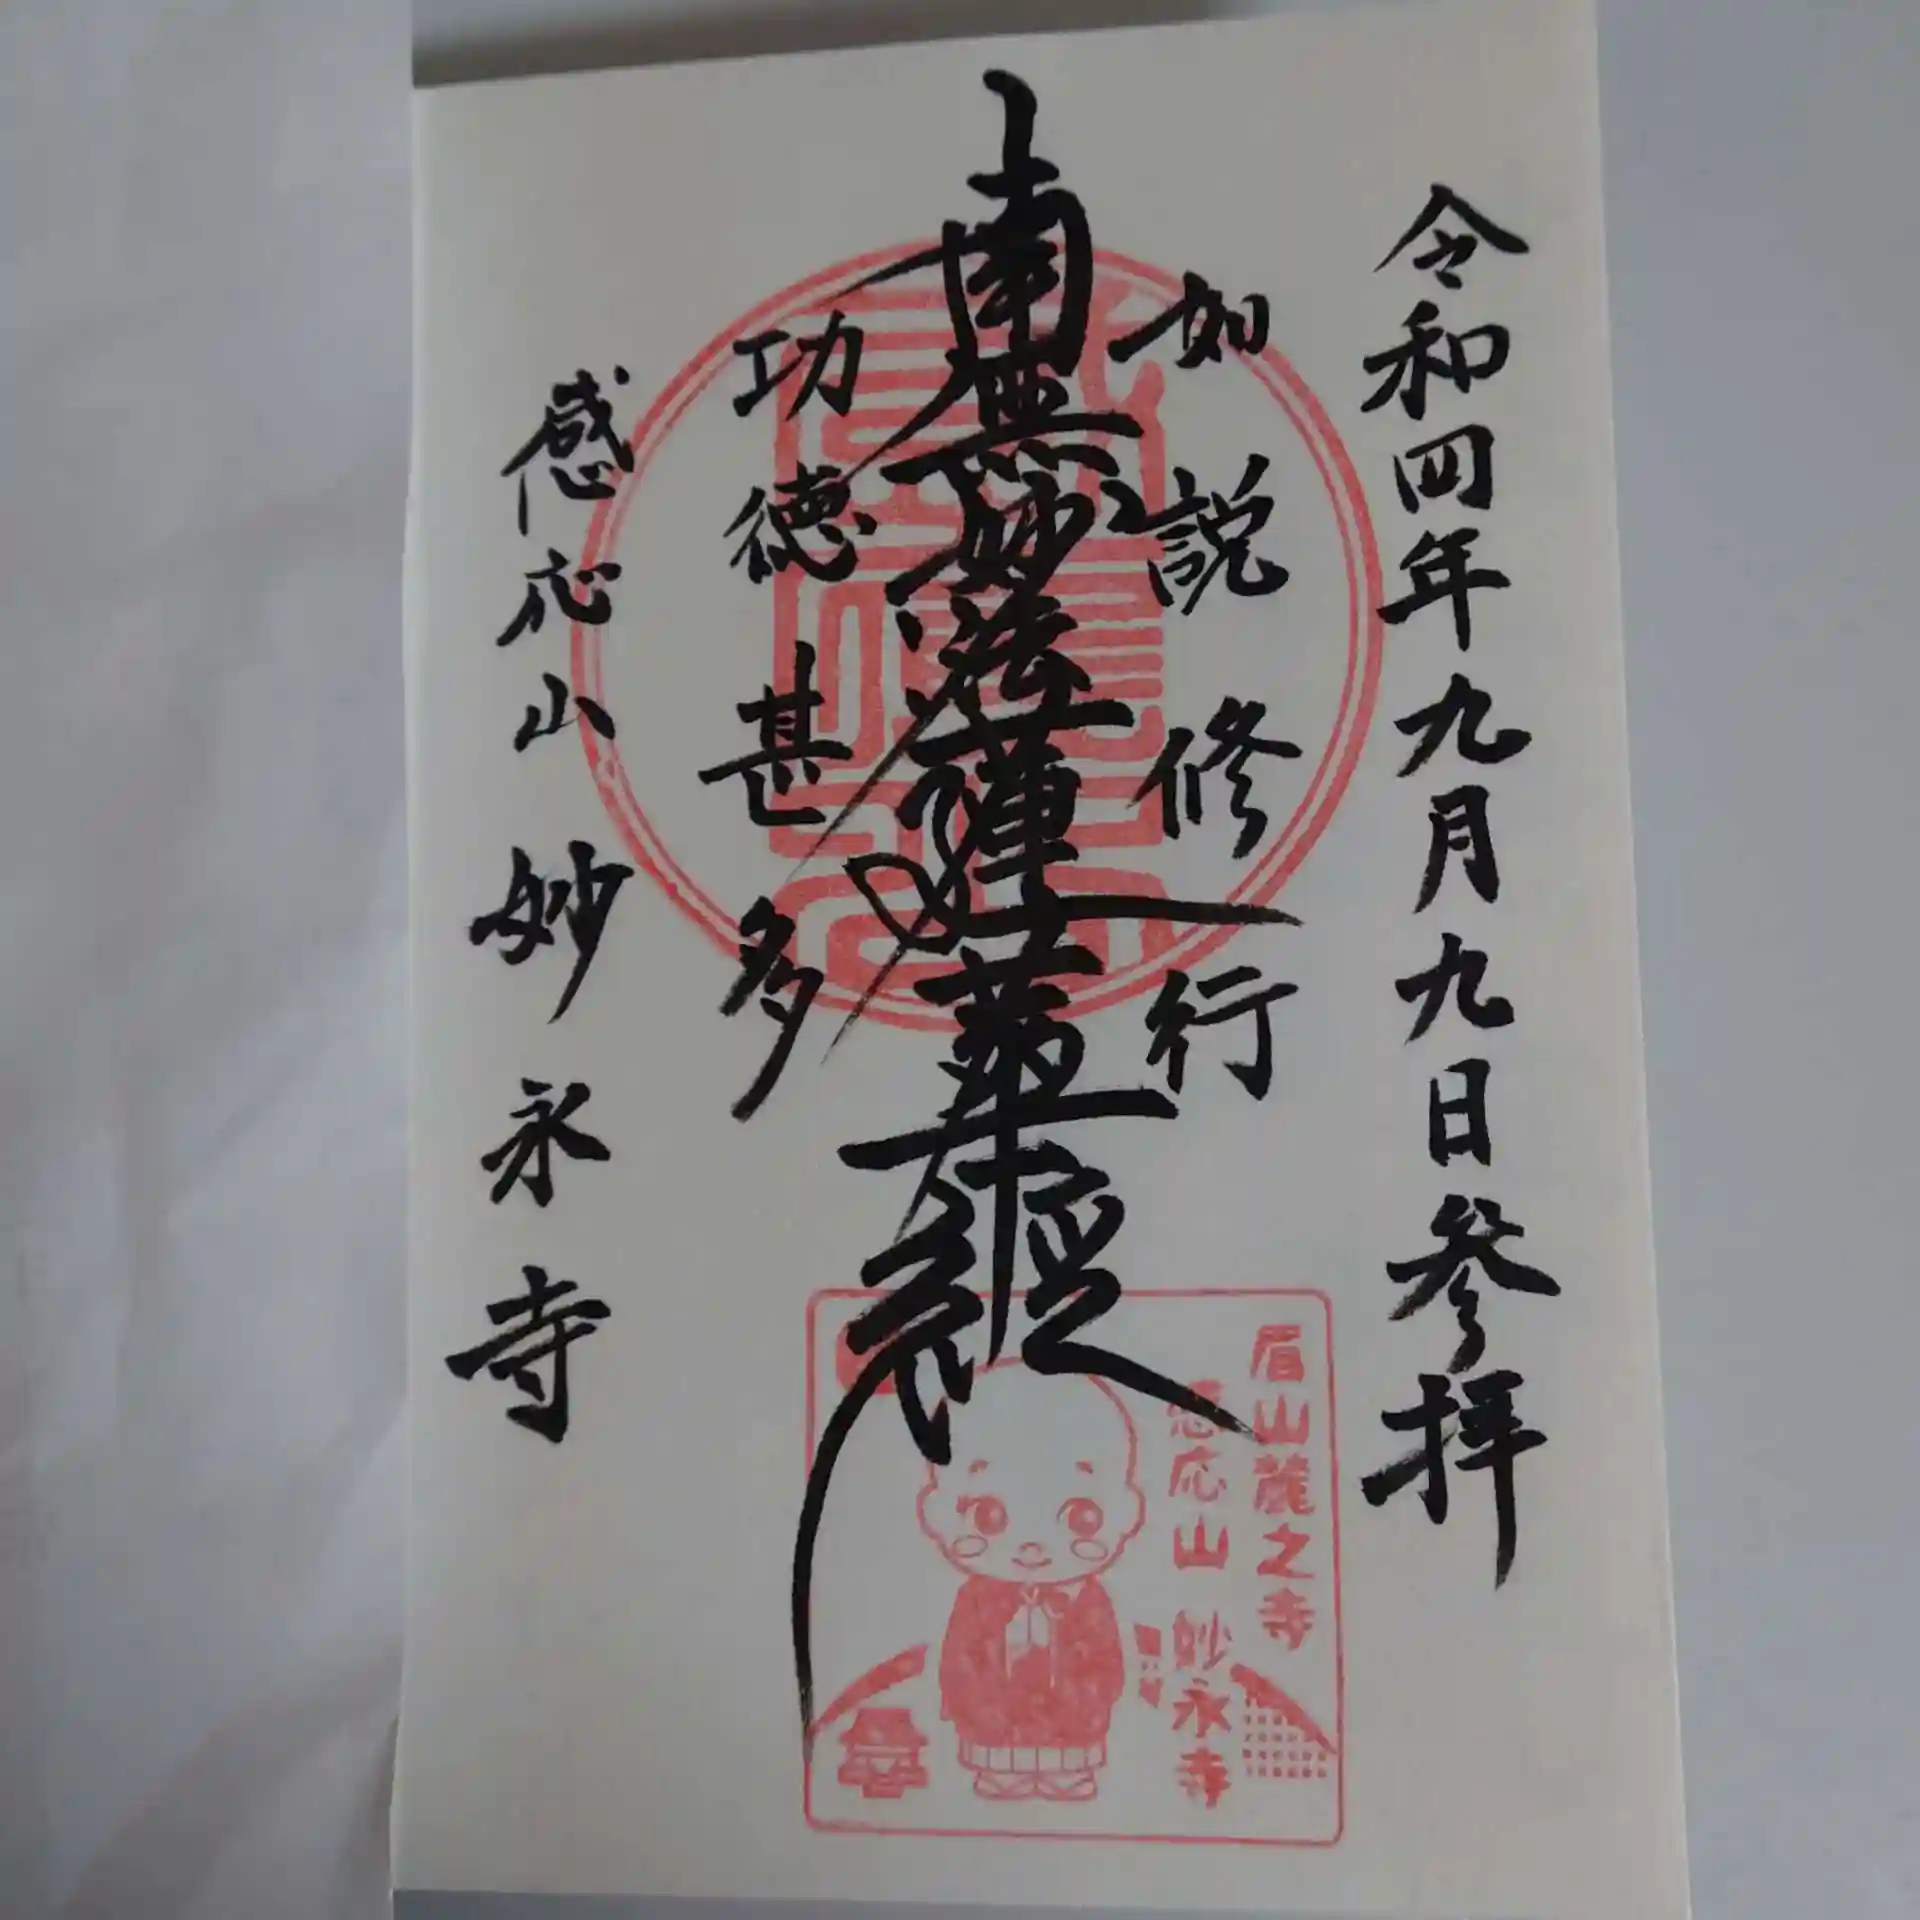 令和四年九月九日参拝
如説修行
南無妙法蓮華経
功徳甚多
感応山 妙永寺
眉山麓之寺
感応山 妙永寺